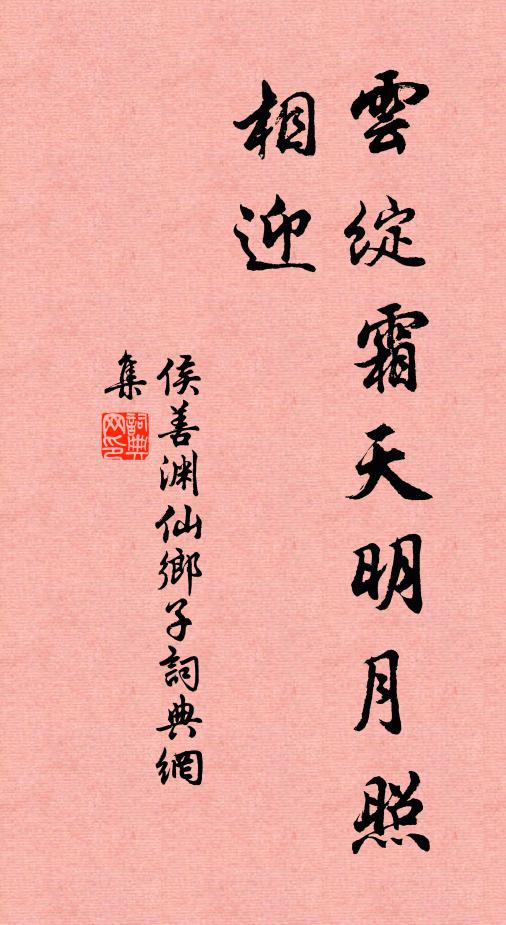 雲綻霜天明月照
相迎
侯善渊仙鄉子詞典網
集
詞典
网印